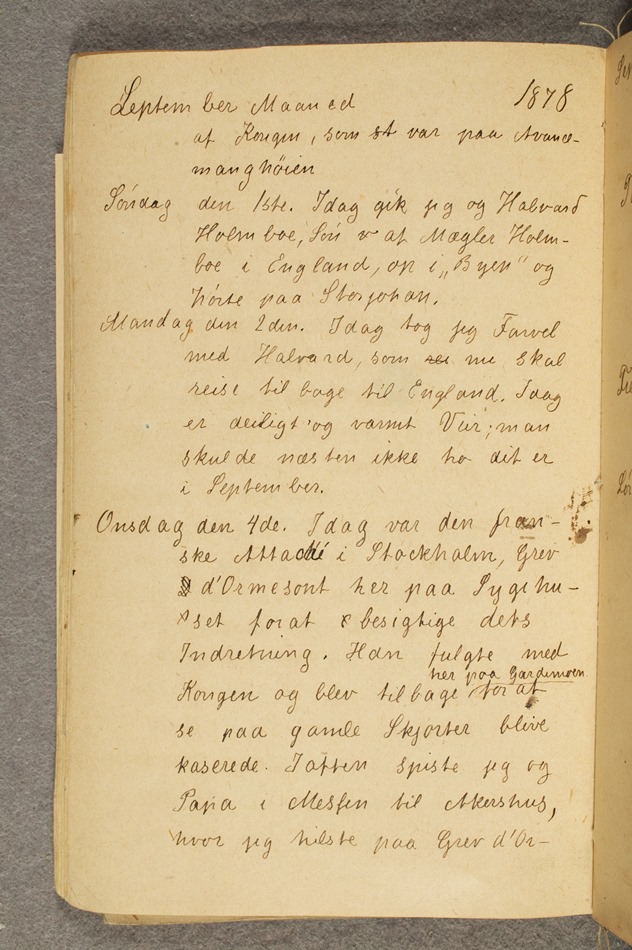 September Maaned 1878
af Kongen, som st var paa Avance-
manghöien
Söndag den 1ste. Idag gik jeg og Halvard
Holmboe, Sön af Mægler Holm-
boe i England, op i „Byen" og
hörte paa Storjohan.
Mandag den 2den. Idag tog jeg Farvel
med Halvard, som nu skal
reise til bage til England. Idag
er deiligt og varmt Veir; man
skulde næsten ikke tro dit er
i September.
Onsdag den 4de. Idag var den fran-
ske Attaché i Stockholm, Grev
d'Ormesont her paa Sygehu-
set forat besigtige dets
Indretning. Han fulgte med
her paa Gardemoen
Kongen og blev tilbage for at
se paa gamle Skjorter blive
kaserede. Iaften spiste jeg og
Papa i Messen til Akershus,
hvor jeg hilste paa Grev d'Or-